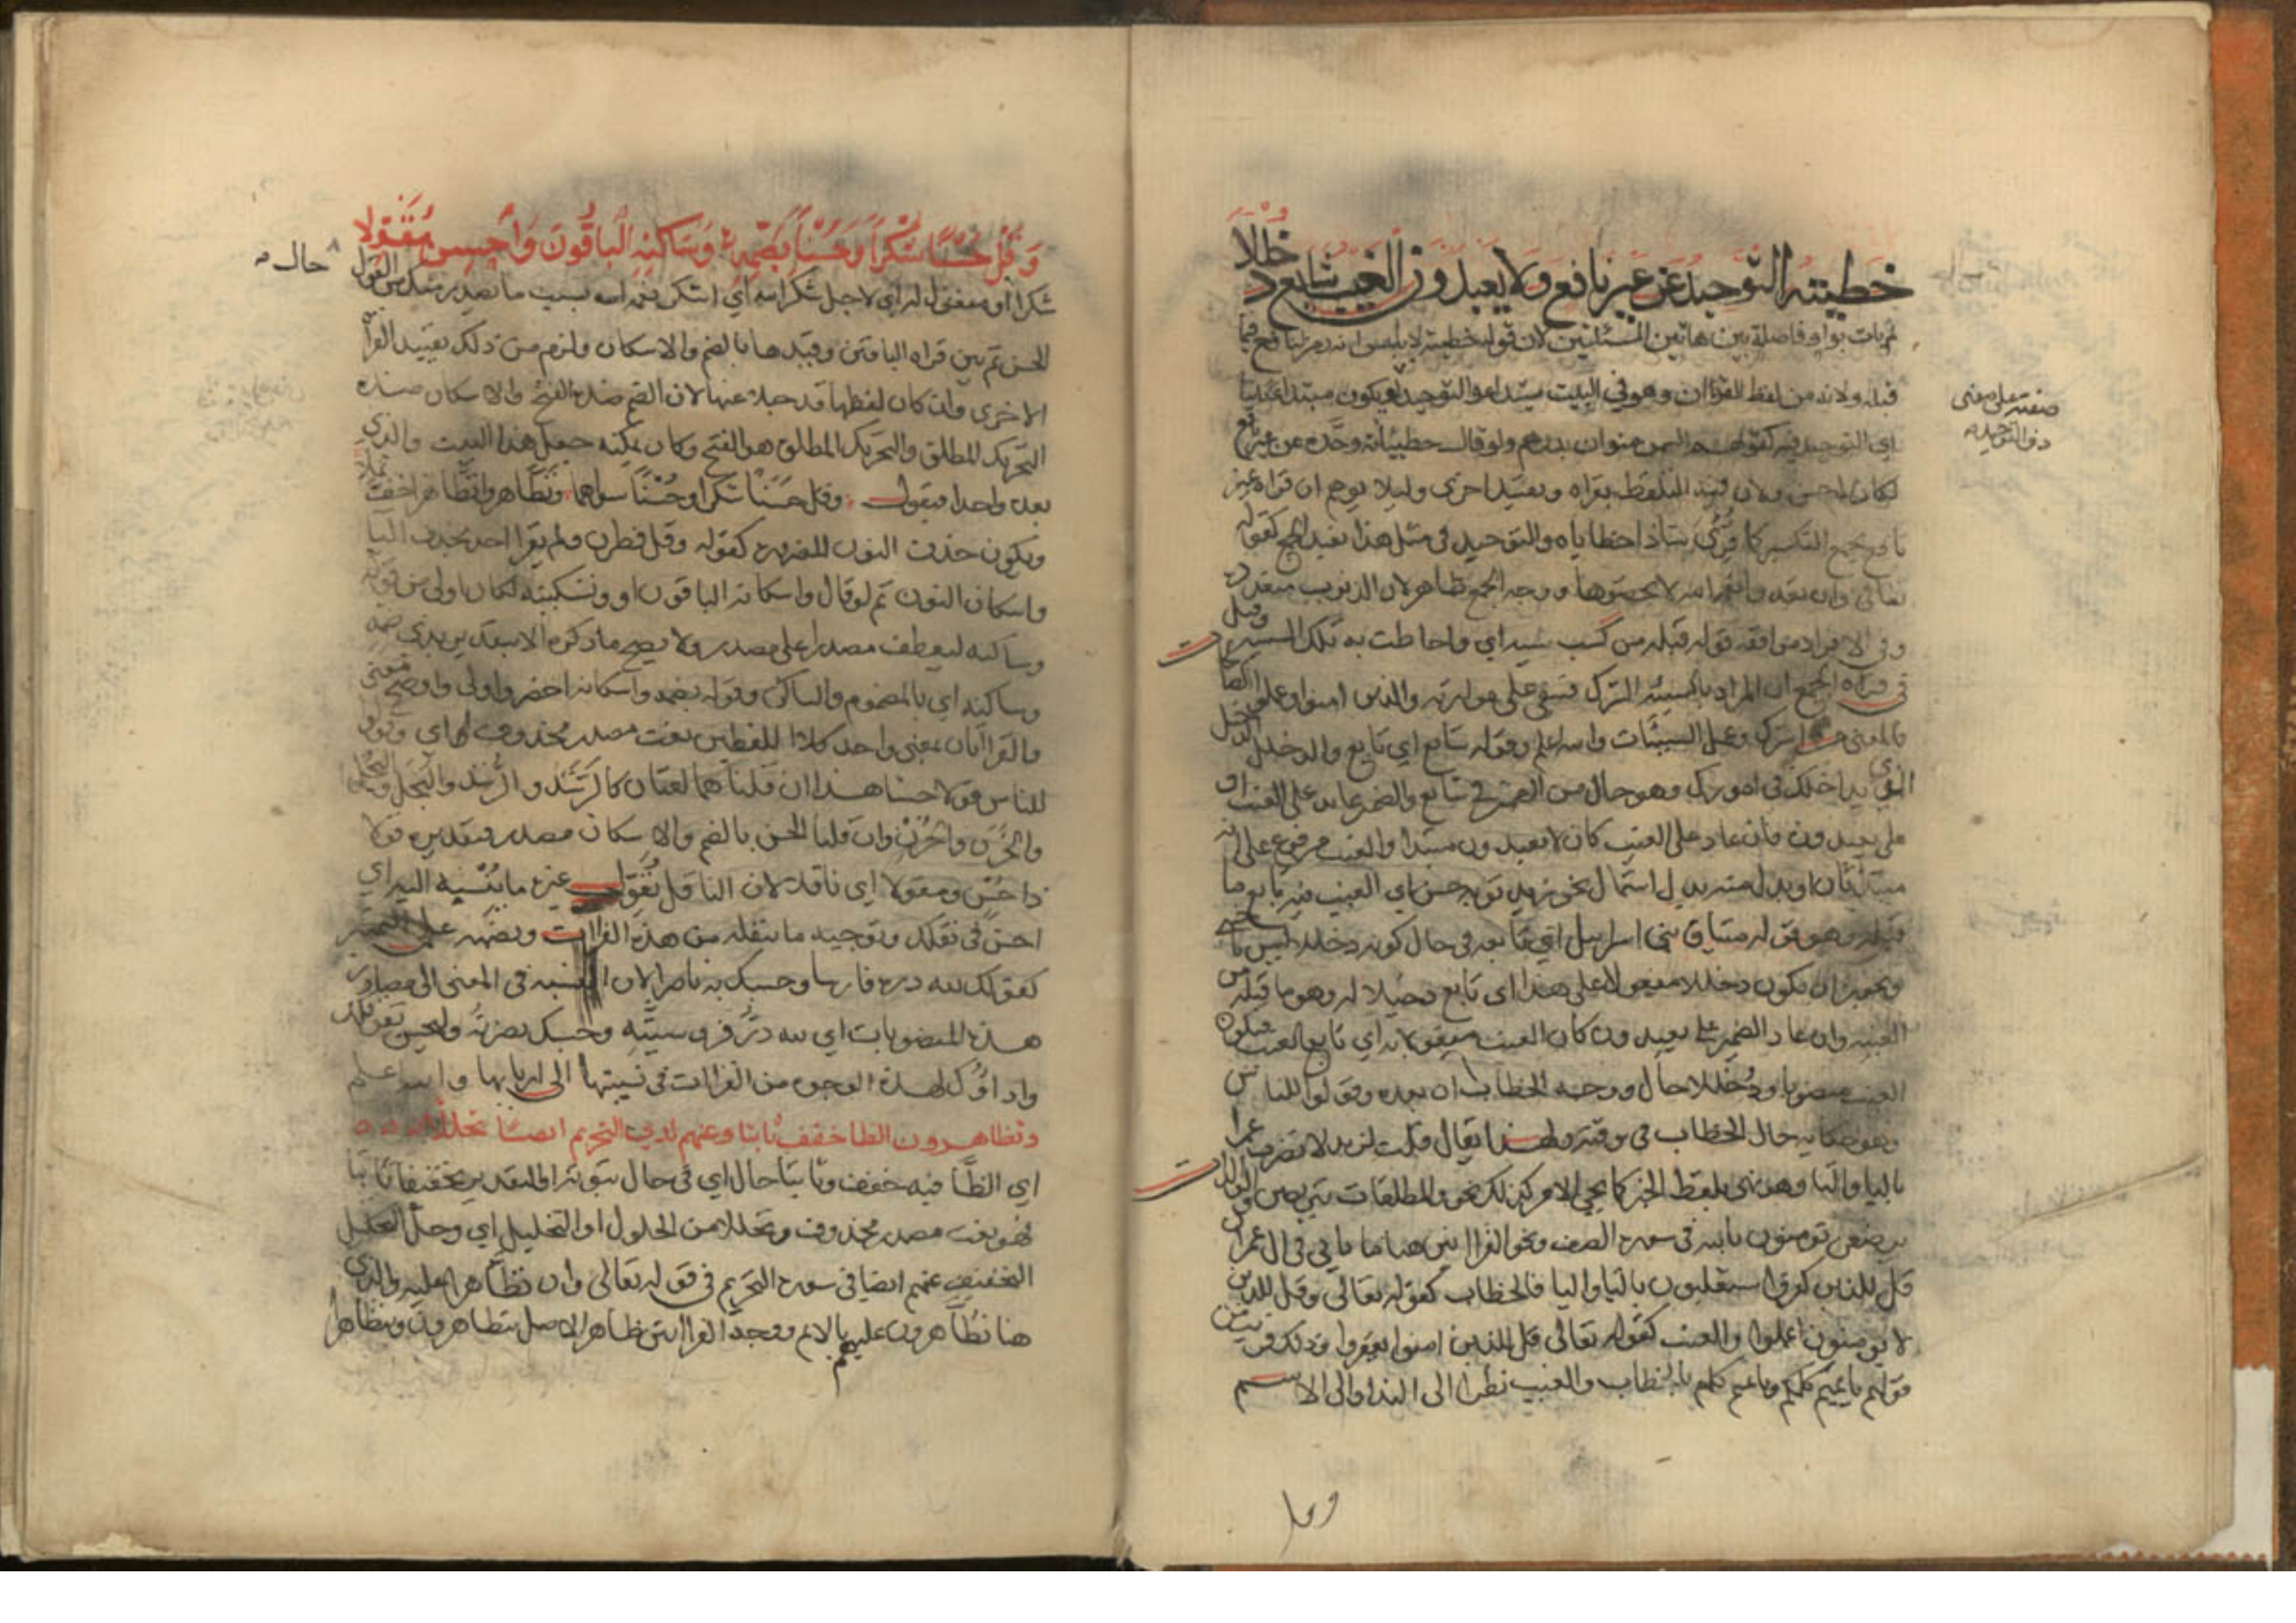 خطيئته التوحيد عن غير نافع ولا يعبدون الغيب شايع دخللا
لم يات بواو فاصلة بين هاتين المسئلتين لان قوله خطيئته لا يلتبس انه رمز لنافع فيما
قبله ولانه من لفظ القران وهو في البيت مبتدا والتوحيد يكون مبتدا ثانيا
اي التوحيد فيه كقولهم السمن منوان بدرهم ولو قال خطيئاته وحده عن غير نافع
لكان احسن ولان فيه التلفظ بقراه وتقييد اخرى وليلا يوهم ان قراه غير
نافع بجمع التكسير كما قرئ شاذا خطاياه والتوحيد في مثل هذا يفيد الجمع كقوله
تعالى وان تعدوا نعمة الله لا تحصوها ووجه الجمع ظاهر لان الذنوب متعددة
وفي الافراد موافقه قوله قبله من كسب سيئة اي واحاطت به تلك السيئة وقيل
في قراه الجمع ان المراد بالسيئة الشرك فتبقى على موازنة والذين امنوا وعلوا الصا
فالمعنى اشرك وعمل السيئات والله اعلم وقوله شايع اي تابع والدخلل الدخيل
الذي يداخلك في امورك وهو حال من الضمير في شايع والضمير عايد على الغيب او
على يعبدون فان عاد على الغيب كان لا يعبدون مبتدا والغيب مرفوع على انه
مبتدا ثان او بدل منه بدل اشتمال نحو زيد ثوبه حسن اي الغيب فيه تابع ما
قبله وهو قوله ميثاق بني اسرايل اي تابعه في حال كونه دخللا ليس باجنبي
ويجوز ان يكون دخللا مفعولا على هذا اي تابع دخيلا له وهو ما قبله من
الغيبة وان عاد الضمير على يعبدون كان الغيب مفعولا به اي تابع الغيب فيكون
الغيب منصوبا ودخللا حال ووجه الخطاب ان بعده وقولوا للناس
وهو حكاية حال الخطاب في وقته ولهذا يقال قلت لزيد لا تضرب عمرا
باليا والتا وهو نهي بلفظ الخبر كما يجي الامر كذلك نحو والمطلقات يتربصن والوالدات
يرضعن تومنون بالله في سورة الصف ونحو القراءتين هنا ما ياتي في ال عمران
قل للذين كفروا ستغلبون بالتا واليا فالخطاب كقوله تعالى وقل للذين
لا يومنون اعملوا والغيب كقوله تعالى قل للذين امنوا يغفروا وذلك قريب من
قولهم يا تميم كلكم ويا تميم كلهم بالخطاب والغيب نظرا الى الندا والى الاسم
صفته على معنى
ذو التوحيد
وما
وقل حسنا شكرا وحسنا بضمه وساكنه الباقون واحسن مقولا
حال
شكرا او مفعول له اي لاجل شكر الله اي اشكر نعمة الله بسبب ما يصدر منك من القول
الحسن ثم بين قراه الباقين وقيدها بالضم والاسكان ولزم من ذلك تقييد القراه
الاخرى وان كان لفظها قد جلا عنها لان الضم ضده الفتح والاسكان ضده
التحريك المطلق والتحريك المطلق هو الفتح وكان يمكنه جعل هذا البيت والذي
بعده واحدا فيقول وقل حسنا شكرا وحسنا سواهما وتظاهروا تظاهرا خف ثملا
ويكون حذف النون للضرورة كقوله وقل فطرن ولم يقرا احد بحذف اليا
واسكان النون ثم لو قال واسكانه الباقون او وتسكينه لكان اولى من قوله
وساكنه ليعطف مصدرا على مصدر ولا يصح ما ذكره الا بتقدير بذي ضمه
وساكنه اي بالمضموم والساكن وقوله بضمه واسكانه اخصر واولى واوضح معنى
والقراتان بمعنى واحد كلا اللفظين نعت مصدر محذوف اي وقولوا
للناس قولا حسنا هذا ان قلنا هما لغتان كالرشد والرشد والبخل والبخل
والحزن والحزن وان قلنا الحسن بالضم والاسكان مصدر فتقديره قولا
ذا حسن ومقولا اي ناقلا لان الناقل يقول غيره ما ينسبه اليه اي
احسن في نقلك وتوجيه ما تنقله من هذه القراات ونصبه على التمييز
كقولك لله دره فارسا وحسبك به ناصرا لان النسبة في المعنى الى مصادر
هذه المنصوبات اي لله در فروسيته وحسبك نصرته وليحسن تقويلك
واداوك لهذه الوجوه من القراات في نسبتها الى اربابها والله اعلم
وتظاهرون الظا خفف ثابتا وعنهم لدى التحريم ايضا تحللا
اي الظا فيه خفف وثابتا حال اي في حال ثبوته او التقدير تخفيفا ثابتا
فهو نعت مصدر محذوف وتحللا من الحلول او التحليل اي وحل التحليل
التخفيف عنهم ايضا في سورة التحريم في قوله تعالى وان تظاهرا عليه والذي
هنا تظاهرون عليهم بالاثم ووجه القراتين ظاهر الاصل تتظاهرون وتتظاهرا